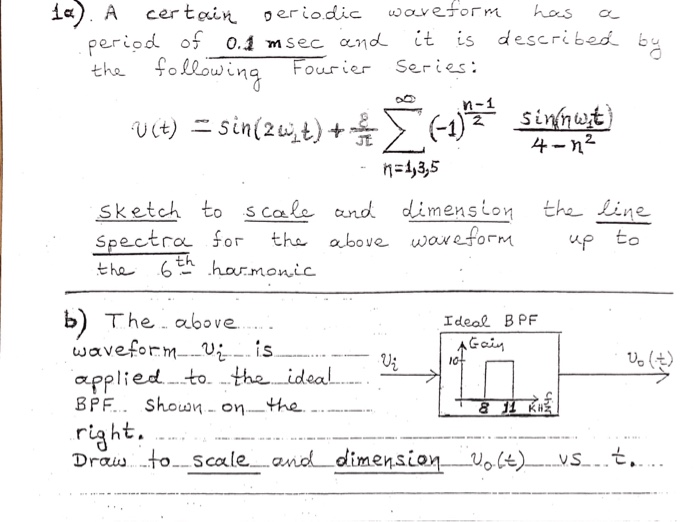 1a). A certain periodic waveform has a
period of 0.1 msec and it is described by
the following Fourier Series:
v(t) = sin(2ω₁t) + 8/π ∑ (-1)^((n-1)/2) sin(nω₁t)/(4-n²)
∞
n=1,3,5
sketch to scale and dimension the line
spectra for the above waveform up to
the 6th harmonic
b) The above
waveform vi is
applied to the ideal
BPF shown on the
right.
Draw to scale and dimension vo(t) vs t.
Ideal BPF
Gain
10
vi
vo(t)
8 11 f KHz